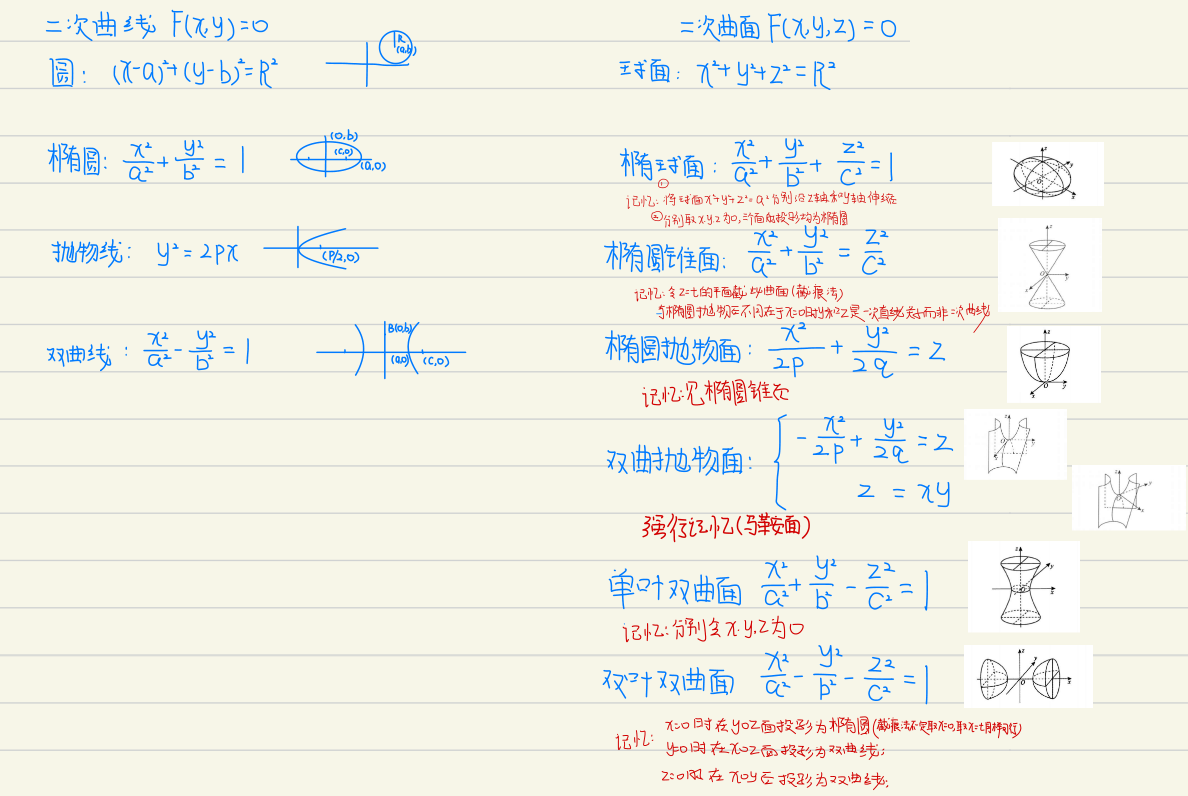 二次曲线 F(x,y)=0
圆: (x-a)²+(y-b)²=R²
R
(a,b)
椭圆: x²/a² + y²/b² = 1
(0,b)
(c,0)
(a,0)
抛物线: y²=2px
(P/2,0)
双曲线: x²/a² - y²/b² = 1
B(0,b)
(a,0)
(c,0)
二次曲面 F(x,y,z)=0
球面: x²+y²+z²=R²
椭球面: x²/a² + y²/b² + z²/c² = 1
记忆: ①将球面x²+y²+z²=a²分别沿z轴和y轴伸缩
②分别取x.y.z为0,三个面的投影均为椭圆
椭圆锥面: x²/a² + y²/b² = z²/c²
记忆:令z=t的平面截此曲面(截痕法)
与椭圆抛物面不同在于x=0时y和z是一次直线关系而非二次曲线
椭圆抛物面: x²/2p + y²/2q = z
记忆:见椭圆锥面
双曲抛物面: { -x²/2p + y²/2q = z
z = xy
强行记忆(马鞍面)
单叶双曲面 x²/a² + y²/b² - z²/c² = 1
记忆:分别令x.y,z为0
双叶双曲面 x²/a² - y²/b² - z²/c² = 1
记忆: x=0时在yoz面投影为椭圆(截痕法不一定取x=0,取x=t同样可行)
y=0时在xoz面投影为双曲线;
z=0时在xoy面投影为双曲线;